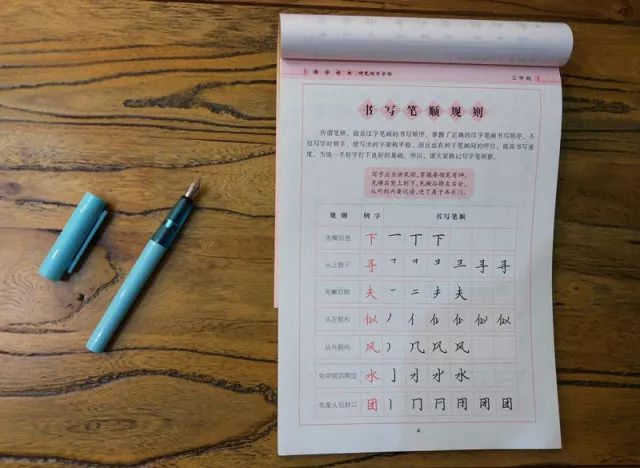 国学经典 硬笔临书字帖
三字经
书写笔顺规则
所谓笔顺，就是汉字笔画的书写顺序。掌握了正确的汉字笔画书写顺序，不
仅写字时顺手，使写出的字架构平稳，而且也有利于笔画间的呼应，提高书写速
度，为练一手好字打下良好的基础。所以，请大家熟记写字笔顺歌。
写字应当讲笔顺，掌握要领笔有神。
先横后竖上到下，先撇后捺左右分。
从外到内要记清，进了屋子再关门。
规则 例字 书写笔顺
先横后竖 下 一 丅 下
从上到下 寻
先撇后捺 夫 一 二 夫 夫
从左到右 似 丿 亻
从外到内 风 丿 几 风 风
先中间后两边 水 亅 水
先里头后封口 团 丨 冂 团
4